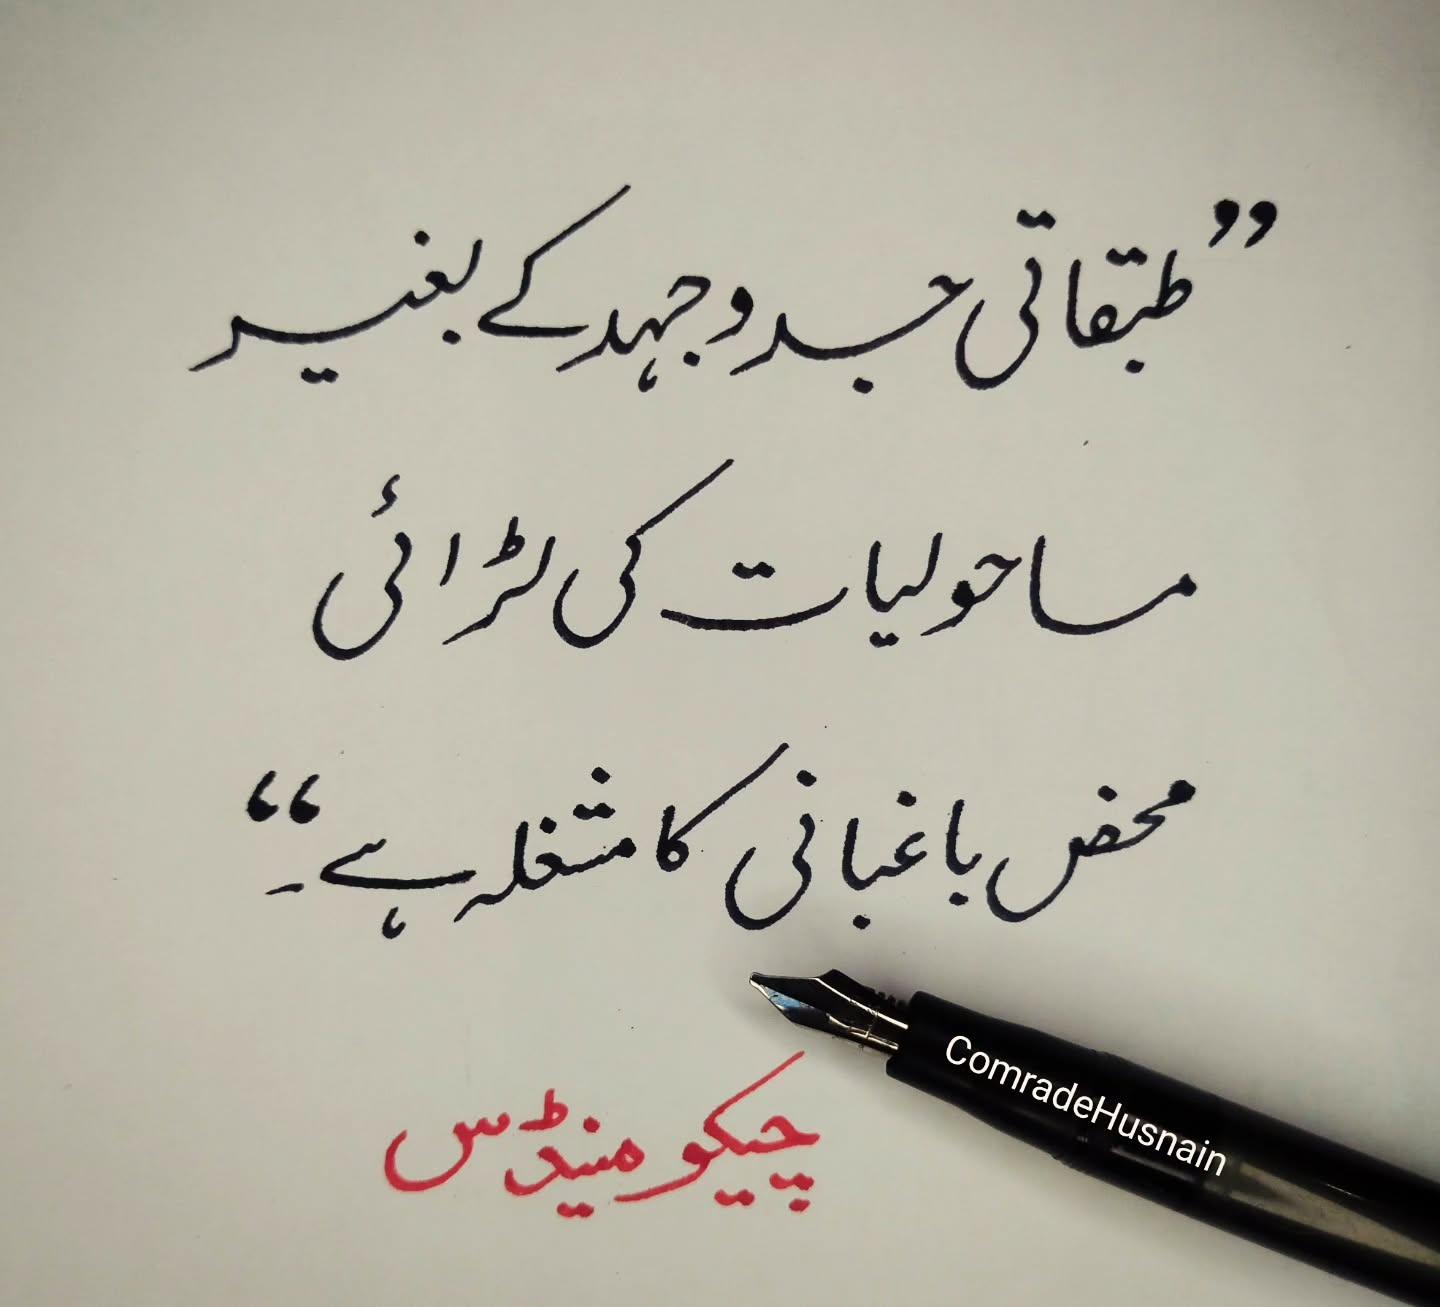 ”طبقاتی جدوجہد کے بغیر
ماحولیات کی لڑائی
محض باغبانی کا مشغلہ ہے۔“
چیکو مینڈس
ComradeHusnain